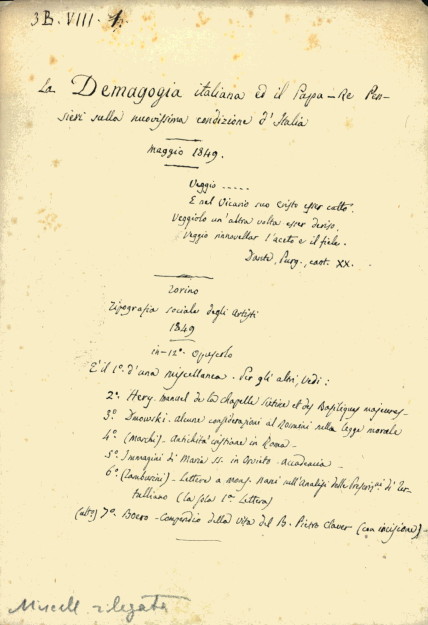 3B. VIII. 1.
La Demagogia italiana ed il Papa-Re Pen-
sieri sulla nuovissima condizione d'Italia
maggio 1849.
Veggio .....
E nel Vicario suo Cristo esser catto.
Veggiolo un'altra volta esser deriso,
Veggio rinnovellar l'aceto e il fiele.
Dante, Purg., cant. XX.
Torino
Tipografia sociale degli Artisti
1849
in-12º. Opuscolo
È il 1º. d'una miscellanea. Per gli altri, vedi:
2º. Hery. manuel de la chapelle Sixtine et des Basiliques majeures-
3º. Dmowski. alcune considerazioni al Rosmini nella legge morale
4º. (Marchi). Antichità cristiane in Roma-
5º. Immagini di Maria SS. in Orvieto. Accademia-
6º. (Zamburini)- Lettera a mons. Nani sull'Analisi delle Prescriz.ni di Ter-
tulliano (la sola 1ª. Lettera)
7º. Boero-Compendio della vita del B. Pietro Claver (con incisione)-
Miscell rilegata